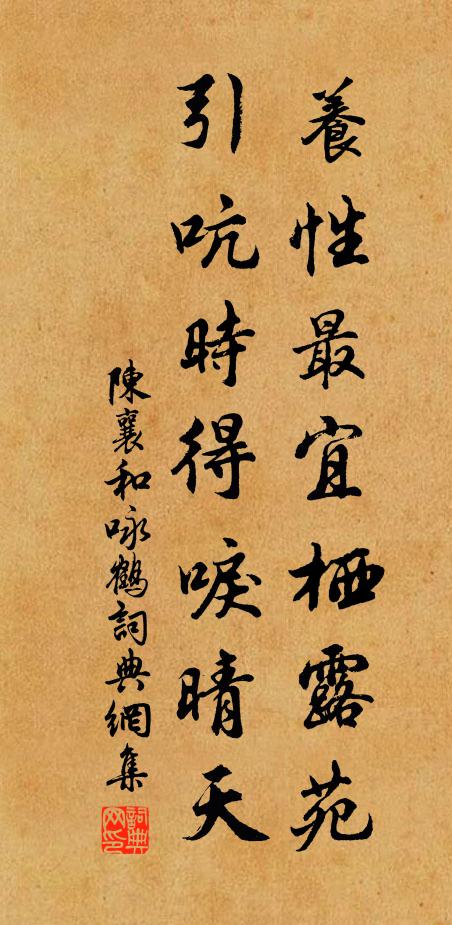 養性最宜栖露苑
引吭時得唳晴天
陳襄和咏鶴詞典網集
詞典网印